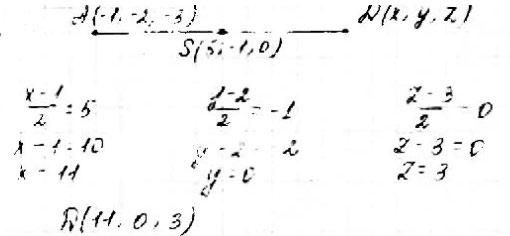 A(-1, -2, -3) D(x, y, z)
S(5, -1, 0)
(x-1)/2 = 5 (y-2)/2 = -1 (z-3)/2 = 0
x-1=10 y-2=-2 z-3=0
x=11 y=0 z=3
D(11, 0, 3)